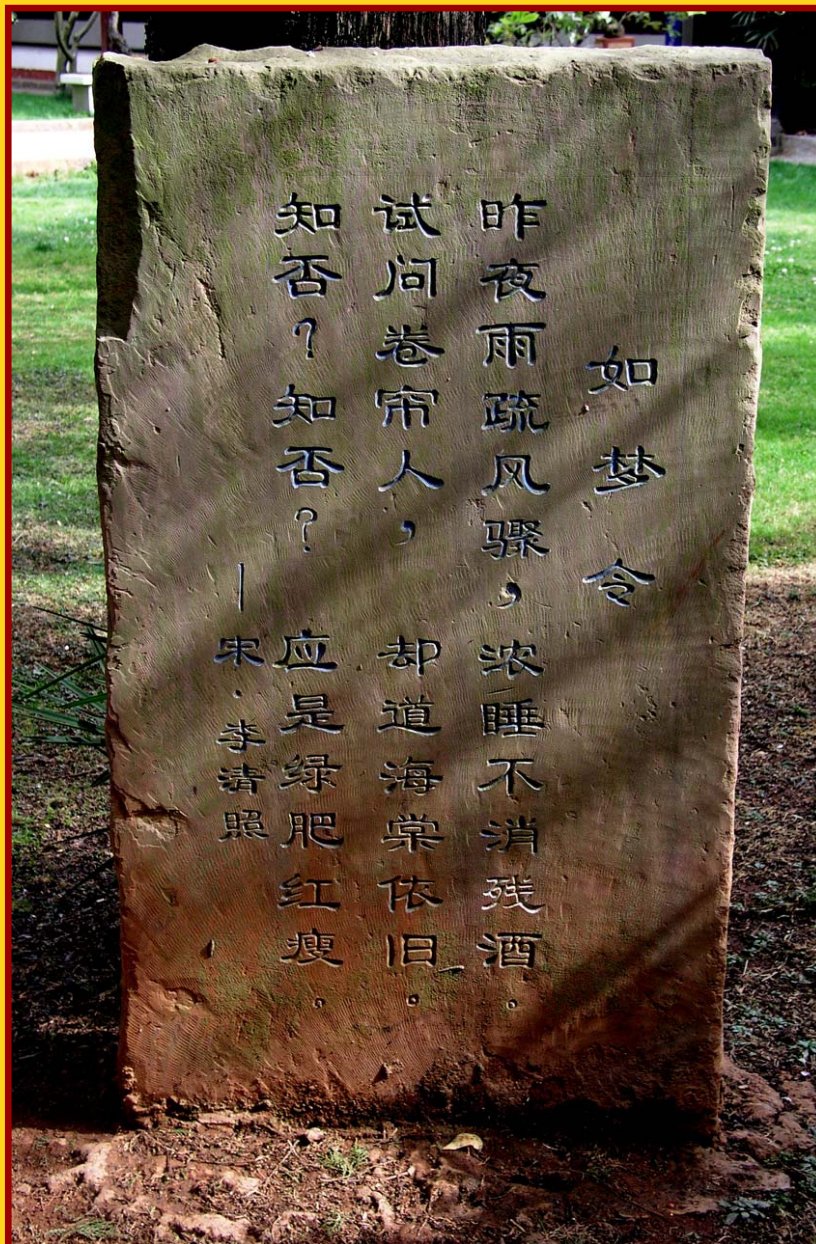 如梦令
昨夜雨疏风骤，浓睡不消残酒。
试问卷帘人，却道海棠依旧。
知否？知否？应是绿肥红瘦。
—宋·李清照